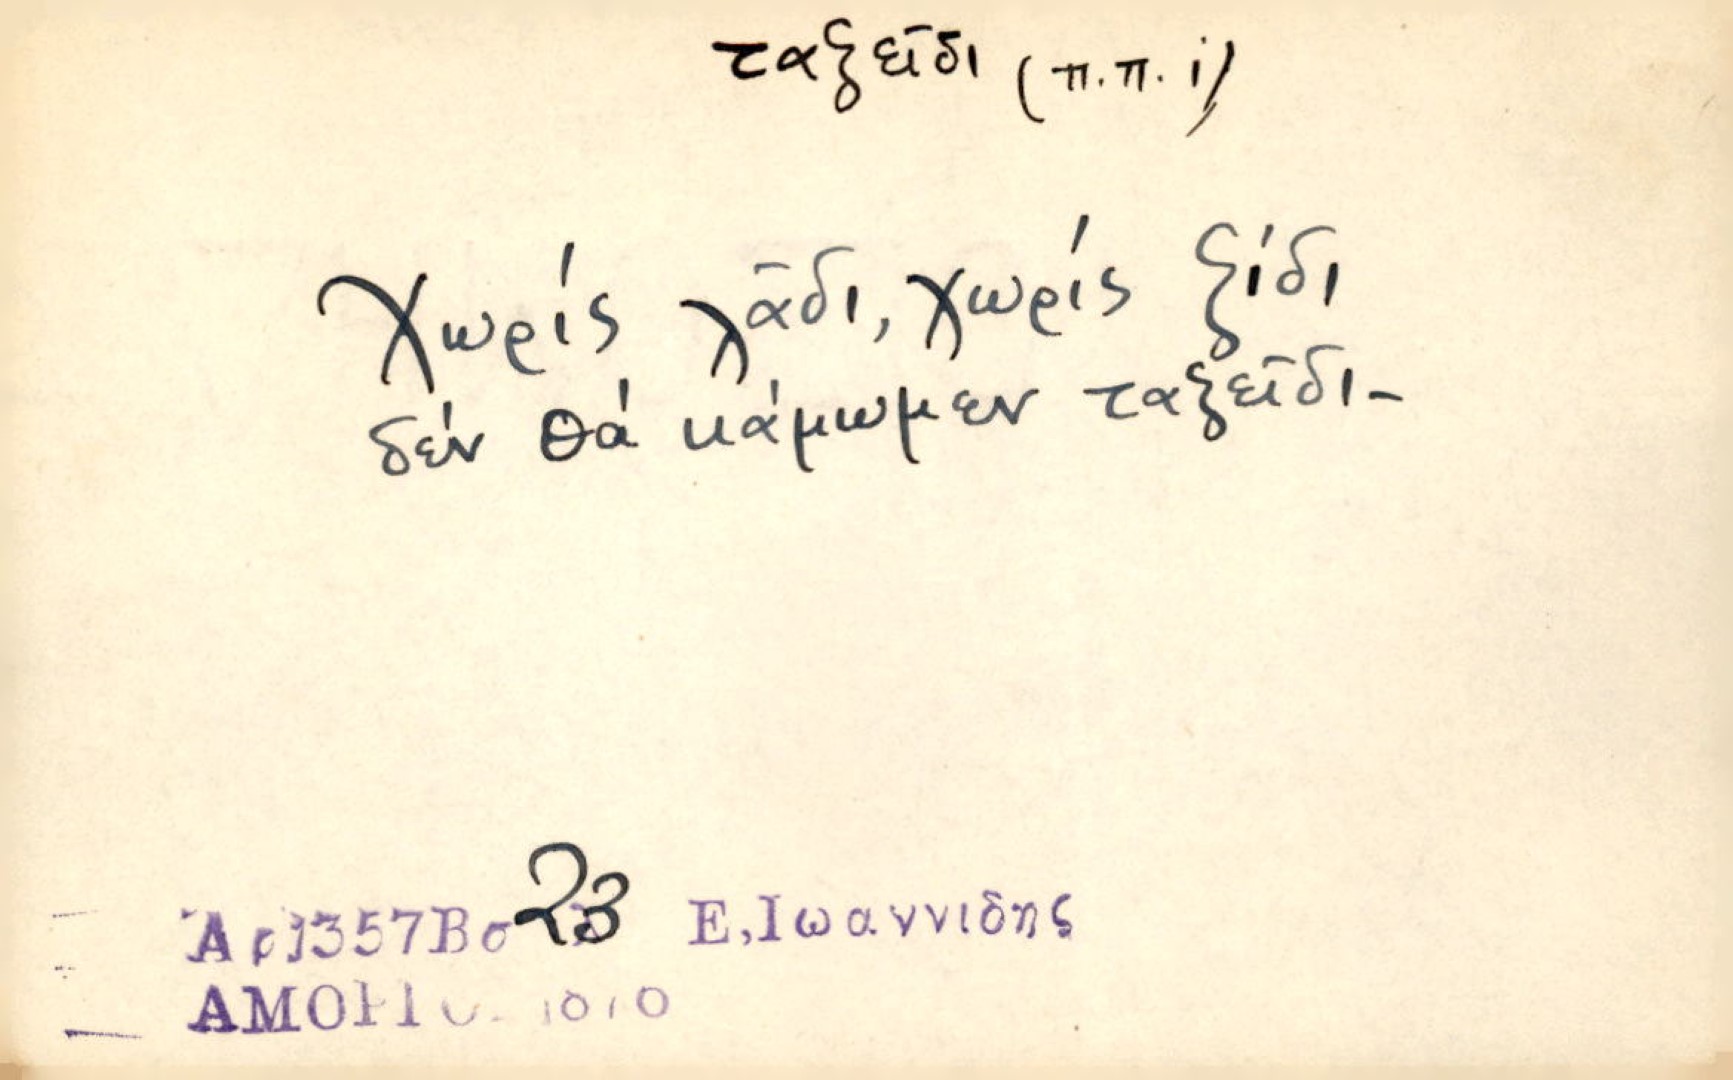 ταξεῖδι (π.π. ἰ)
Χωρίς λᾶδι, χωρίς ξίδι
δέν θά κάμωμεν ταξεῖδι-
Ἀρ1357Βσ 23 Ε,Ιωαννιδης